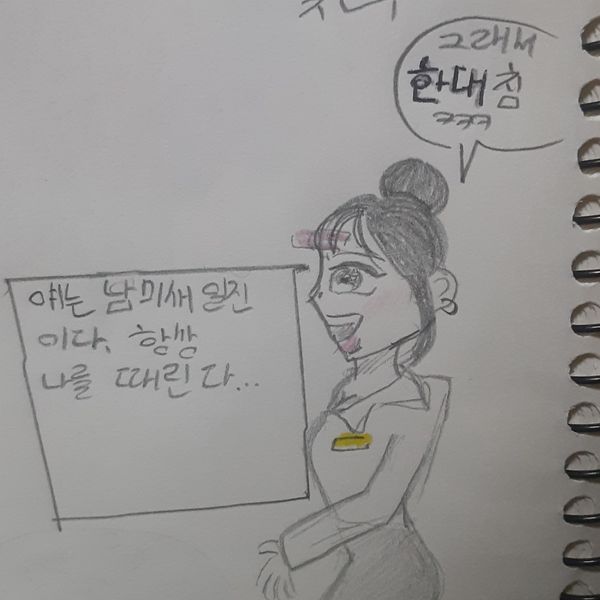 그래서
한대침
ㅋㅋㅋ
얘는 남미새 일진
이다. 항쌍
나를 때린다...